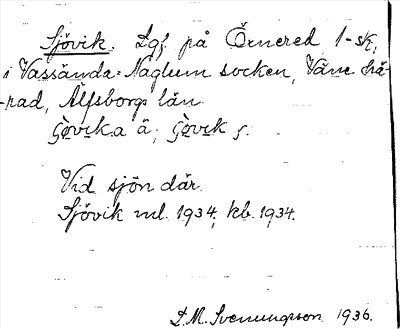 Sjövik. Lgf. på Örnered 1-sk,
i Vassända-Naglum socken, Väne hä-
rad, Älfsborgs län.
Vid sjön där.
Sjövik ml. 1934, kb. 1934.
D.M. Svenungsson 1936.